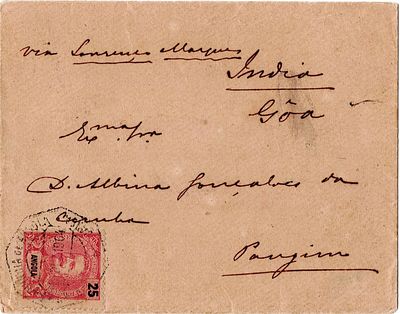 via Lourenço Marques
India
Gôa
Exma Sra
D. Albina Gonçalves da
Cunha
Pangim
ANGOLA
25